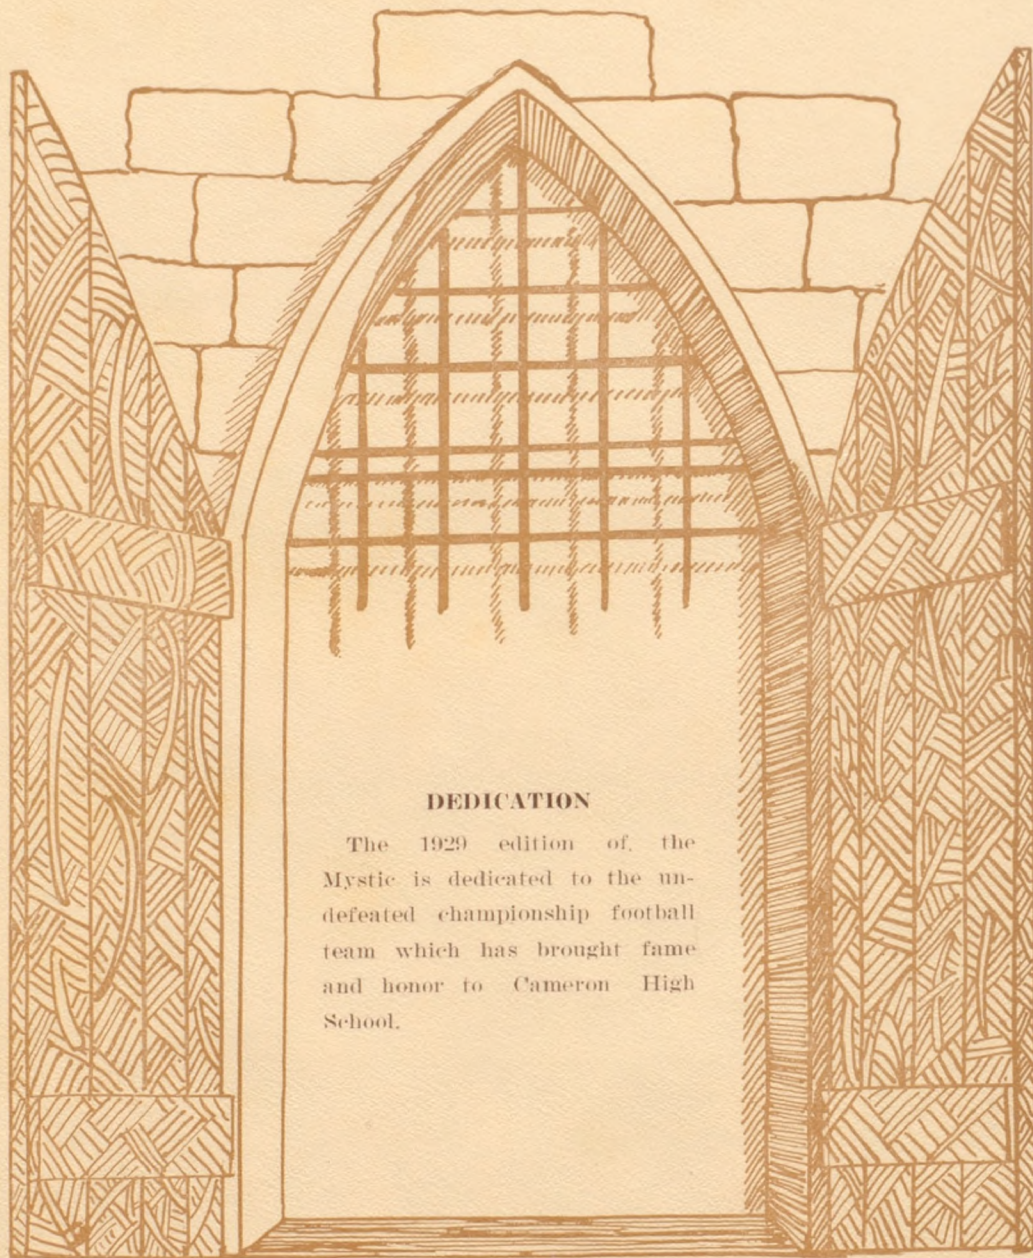 DEDICATION
The 1929 edition of. the
Mystic is dedicated to the un-
defeated championship football
team which has brought fame
and honor to Cameron High
School.